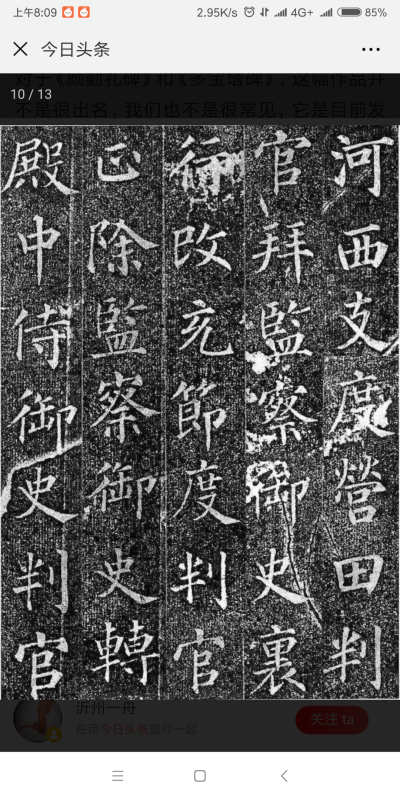 上午8:09
2.95K/s
4G+
85%
今日头条
对于《颜勤礼碑》和《多宝塔碑》，这幅作品并
10 / 13
不是很出名，我们也不是很常见，它是目前发
河西支度營田判
官拜監察御史裏
行改充節度判官
正除監察御史轉
殿中侍御史判官
沂州一舟
在用今日头条跟你一起
关注 ta